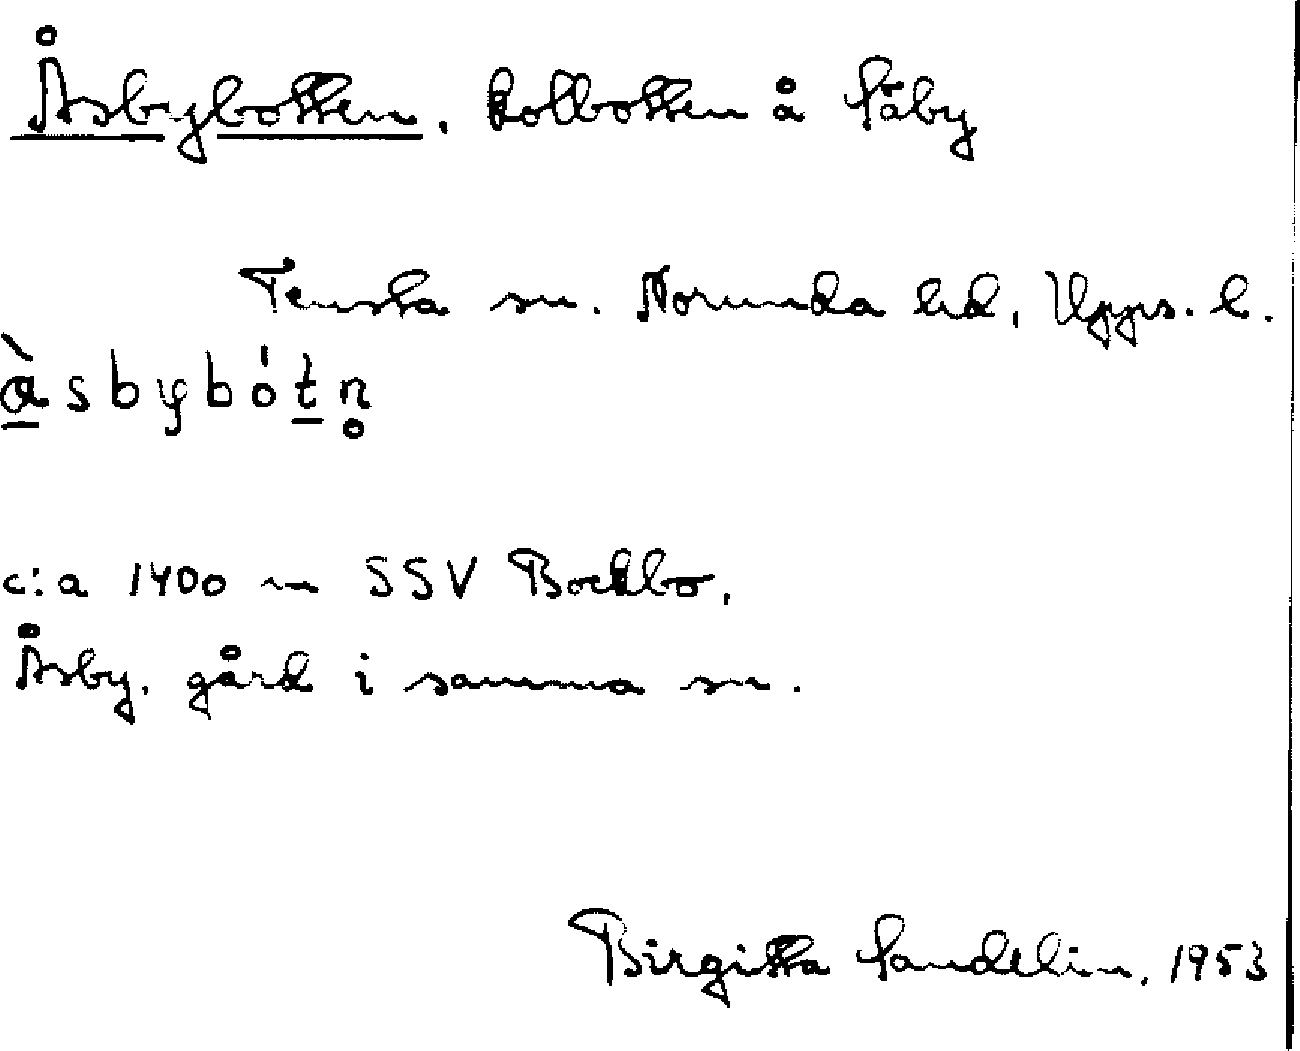 Åsbybotten. kolbotten å Säby
Tensta sn. Norunda hd, Upps. l.
à̱sbybótṉ̥
c:a 1400 m SSV Bockbo.
Åsby, gård i samma sn.
Birgitta Sandelin, 1953